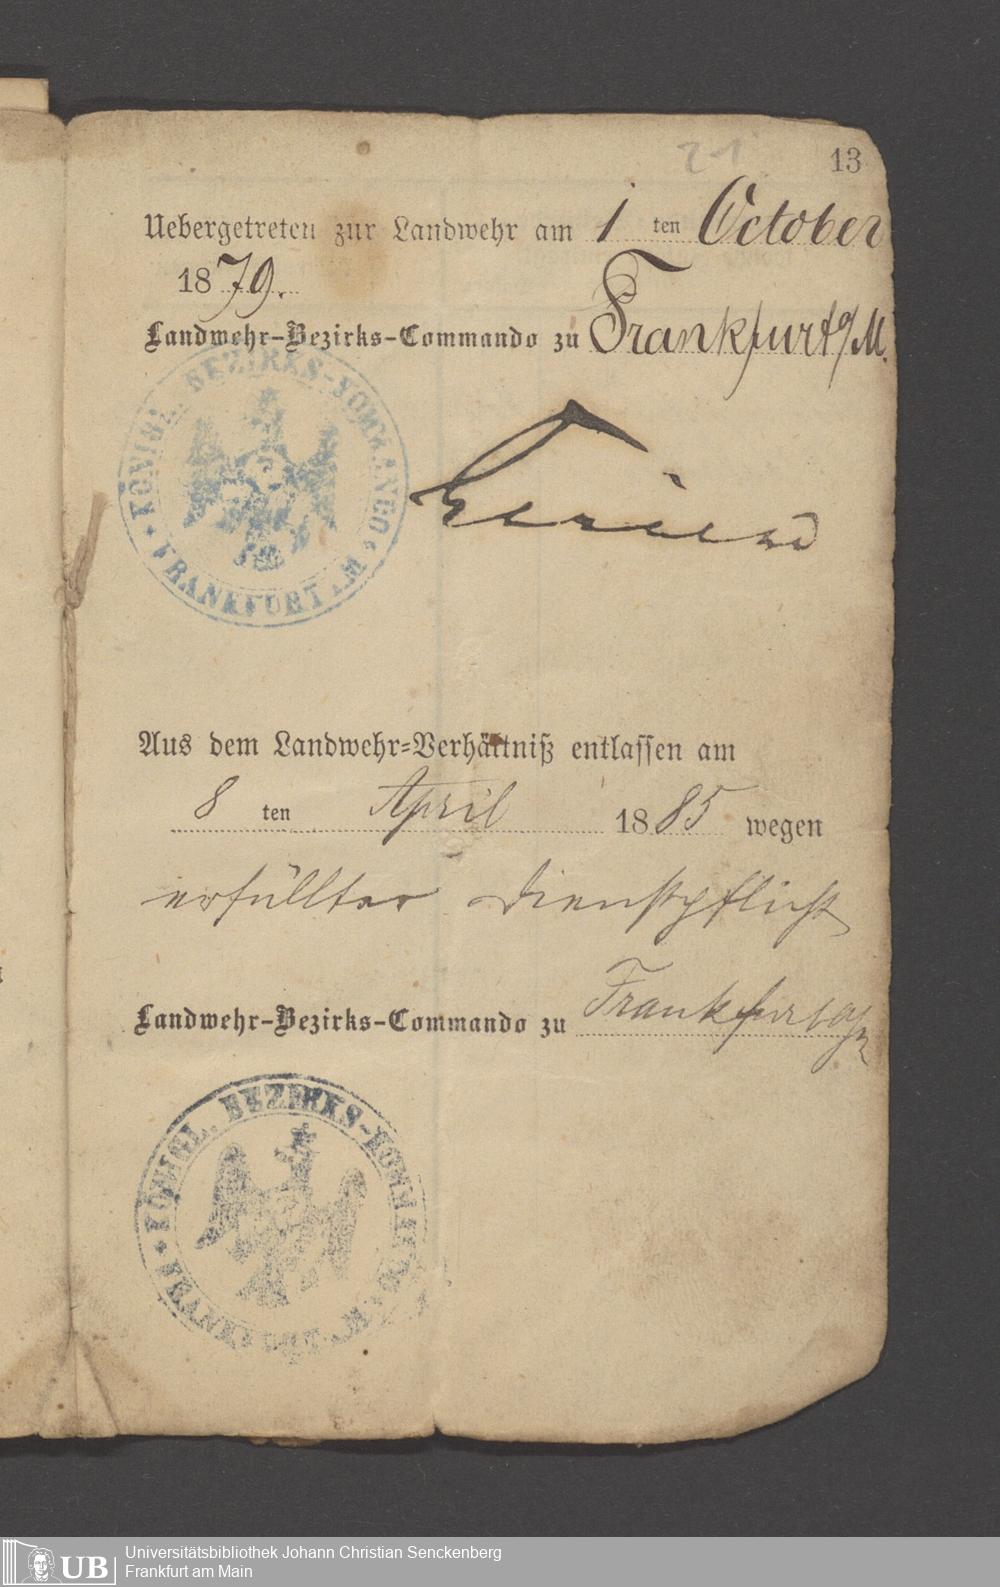 21
13
Uebergetreten zur Landwehr am 1 ten October
1879.
Landwehr-Bezirks-Commando zu Frankfurt a/M.
KÖNIGL. BEZIRKS-KOMMANDO
FRANKFURT A.M.
Aus dem Landwehr-Verhältniß entlassen am
8 ten April 1885 wegen
erfüllter Dienstpflicht
Landwehr-Bezirks-Commando zu Frankfurt a/M
KÖNIGL. BEZIRKS-KOMMANDO
FRANKFURT A.M.
UB
Universitätsbibliothek Johann Christian Senckenberg
Frankfurt am Main